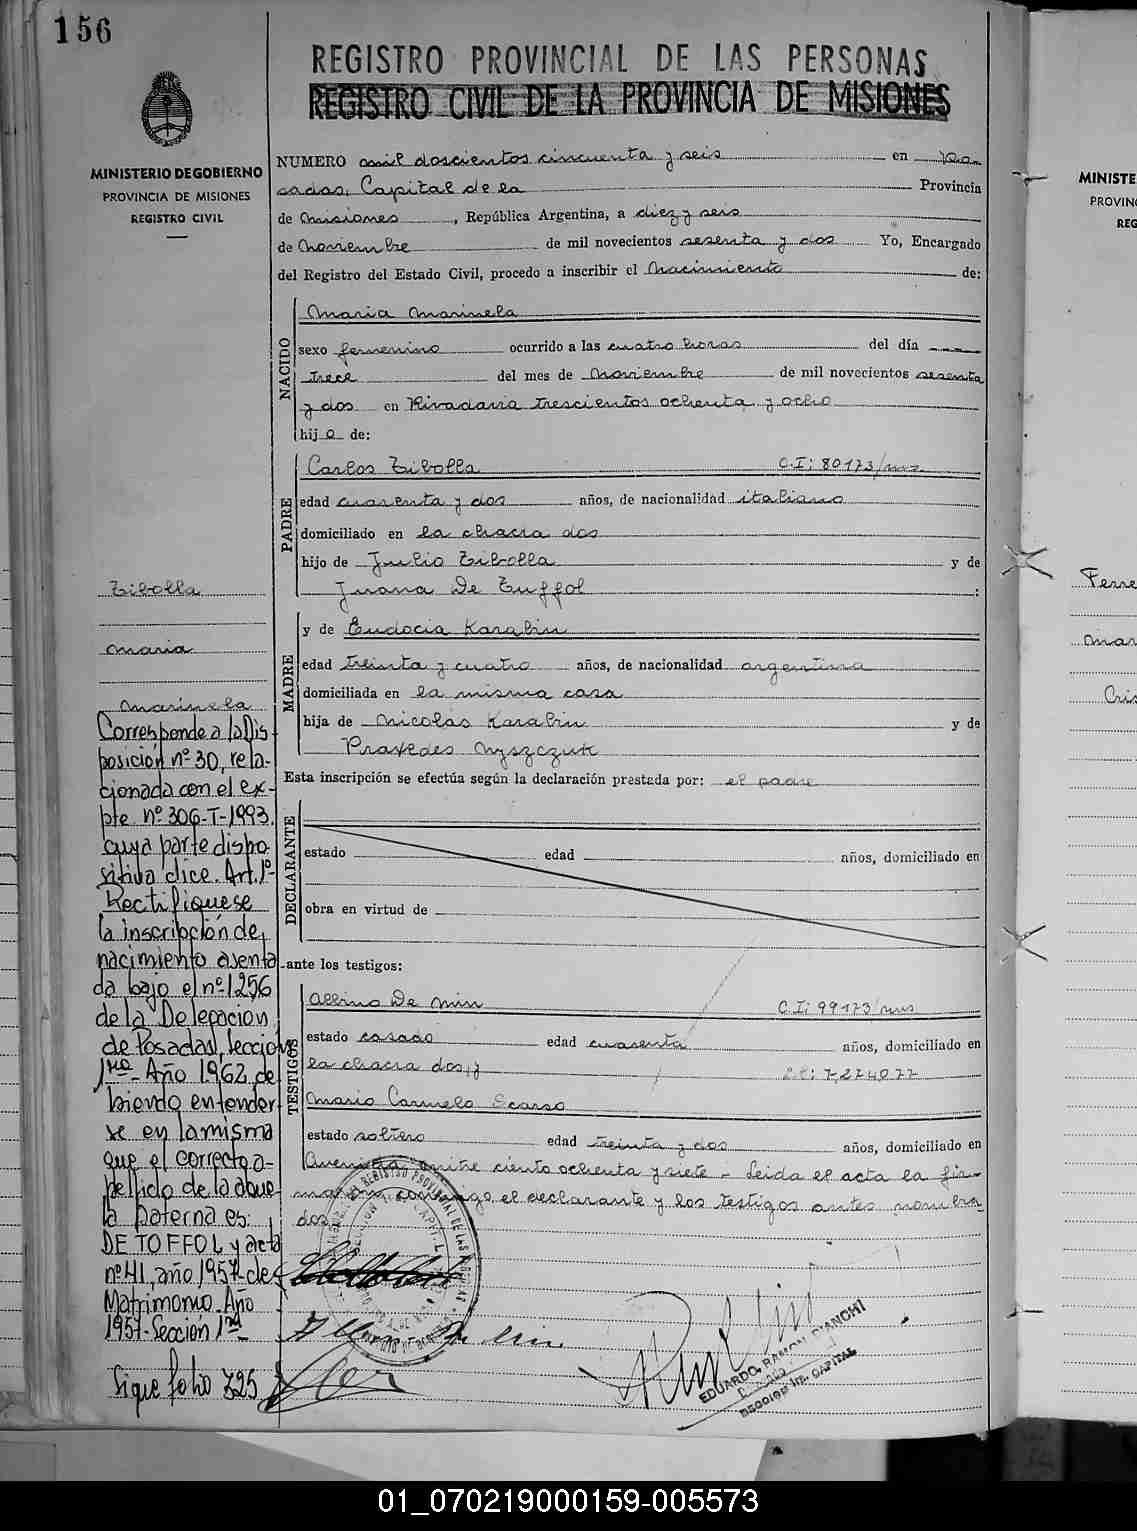 156
REGISTRO PROVINCIAL DE LAS PERSONAS
REGISTRO CIVIL DE LA PROVINCIA DE MISIONES
MINISTERIO DE GOBIERNO
PROVINCIA DE MISIONES
REGISTRO CIVIL
NUMERO mil doscientos cincuenta y seis en Po-
sadas, Capital de la Provincia
de Misiones, República Argentina, a diez y seis
de Noviembre de mil novecientos sesenta y dos Yo, Encargado
del Registro del Estado Civil, procedo a inscribir el Nacimiento de:
NACIDO
Maria Marinela
sexo femenino ocurrido a las cuatro horas del día
trece del mes de Noviembre de mil novecientos sesenta
y dos en Rivadavia trescientos ochenta y ocho
hij a de:
PADRE
Carlos Tibolla C.I: 80173/mns.
edad cuarenta y dos años, de nacionalidad italiano
domiciliado en la chacra dos
hijo de Julio Tibolla y de
Juana De Tuffol :
MADRE
y de Eudocia Karabin
edad treinta y cuatro años, de nacionalidad argentina
domiciliada en la misma casa
hija de Nicolás Karabin y de
Praxedes Nyszczuk
Esta inscripción se efectúa según la declaración prestada por: el padre
DECLARANTE
estado edad años, domiciliado en
obra en virtud de
ante los testigos:
TESTIGOS
Albino De Min C.I: 99173/mns
estado casado edad cuarenta años, domiciliado en
la chacra dos, y 7.274077
Mario Carmelo Scarso
estado soltero edad treinta y dos años, domiciliado en
Avenida Mitre ciento ochenta y siete - Leida el acta la fir-
maron conmigo el declarante y los testigos antes nombra-
dos
Tibolla
Maria
Marinela
Corresponde a la Dis-
posición nº 30, rela-
cionada con el ex-
pte nº 306-T-1993.
cuya parte dispo-
sitiva dice. Art. 1º-
Rectifiquese
la inscripción de
nacimiento asenta
da bajo el nº 1256
de la Delegacion
de Posadas, Seccion
1ra- Año 1962 de
biendo entender-
se en la misma
que el correcto a-
pellido de la abue-
la paterna es:
DE TOFFOL y acta
nº 41, año 1957- de
Matrimonio. Año
1957- Sección 1ra
Sigue folio 325
EDUARDO RAMON BIANCHI
SECCION 1ra. CAPITAL
MINISTE
PROVIN
REG
Ferre
Mar
Cris
01_070219000159-005573